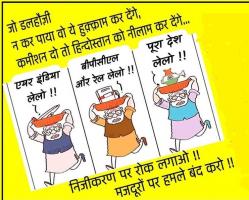 जो डलहौज़ी
न कर पाया वो ये हुक्काम कर देंगे,
कमीशन दो तो हिन्दोस्तान को नीलाम कर देंगे...
एयर इंडिया
लेलो !!
बीपीसीएल
और रेल लेलो !!
पूरा देश
लेलो !!
निजीकरण पर रोक लगाओ !!
मजदूरों पर हमले बंद करो !!